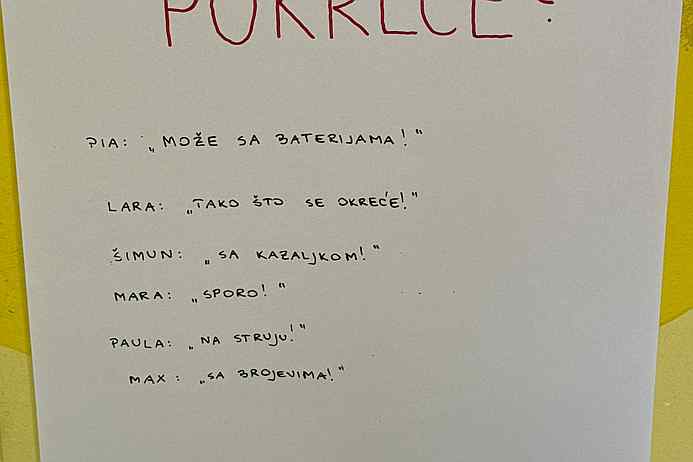 POKREĆE?
PIA: „MOŽE SA BATERIJAMA!“
LARA: „TAKO ŠTO SE OKREĆE!“
ŠIMUN: „SA KAZALJKOM!“
MARA: „SPORO!“
PAULA: „NA STRUJU!“
MAX: „SA BROJEVIMA!“